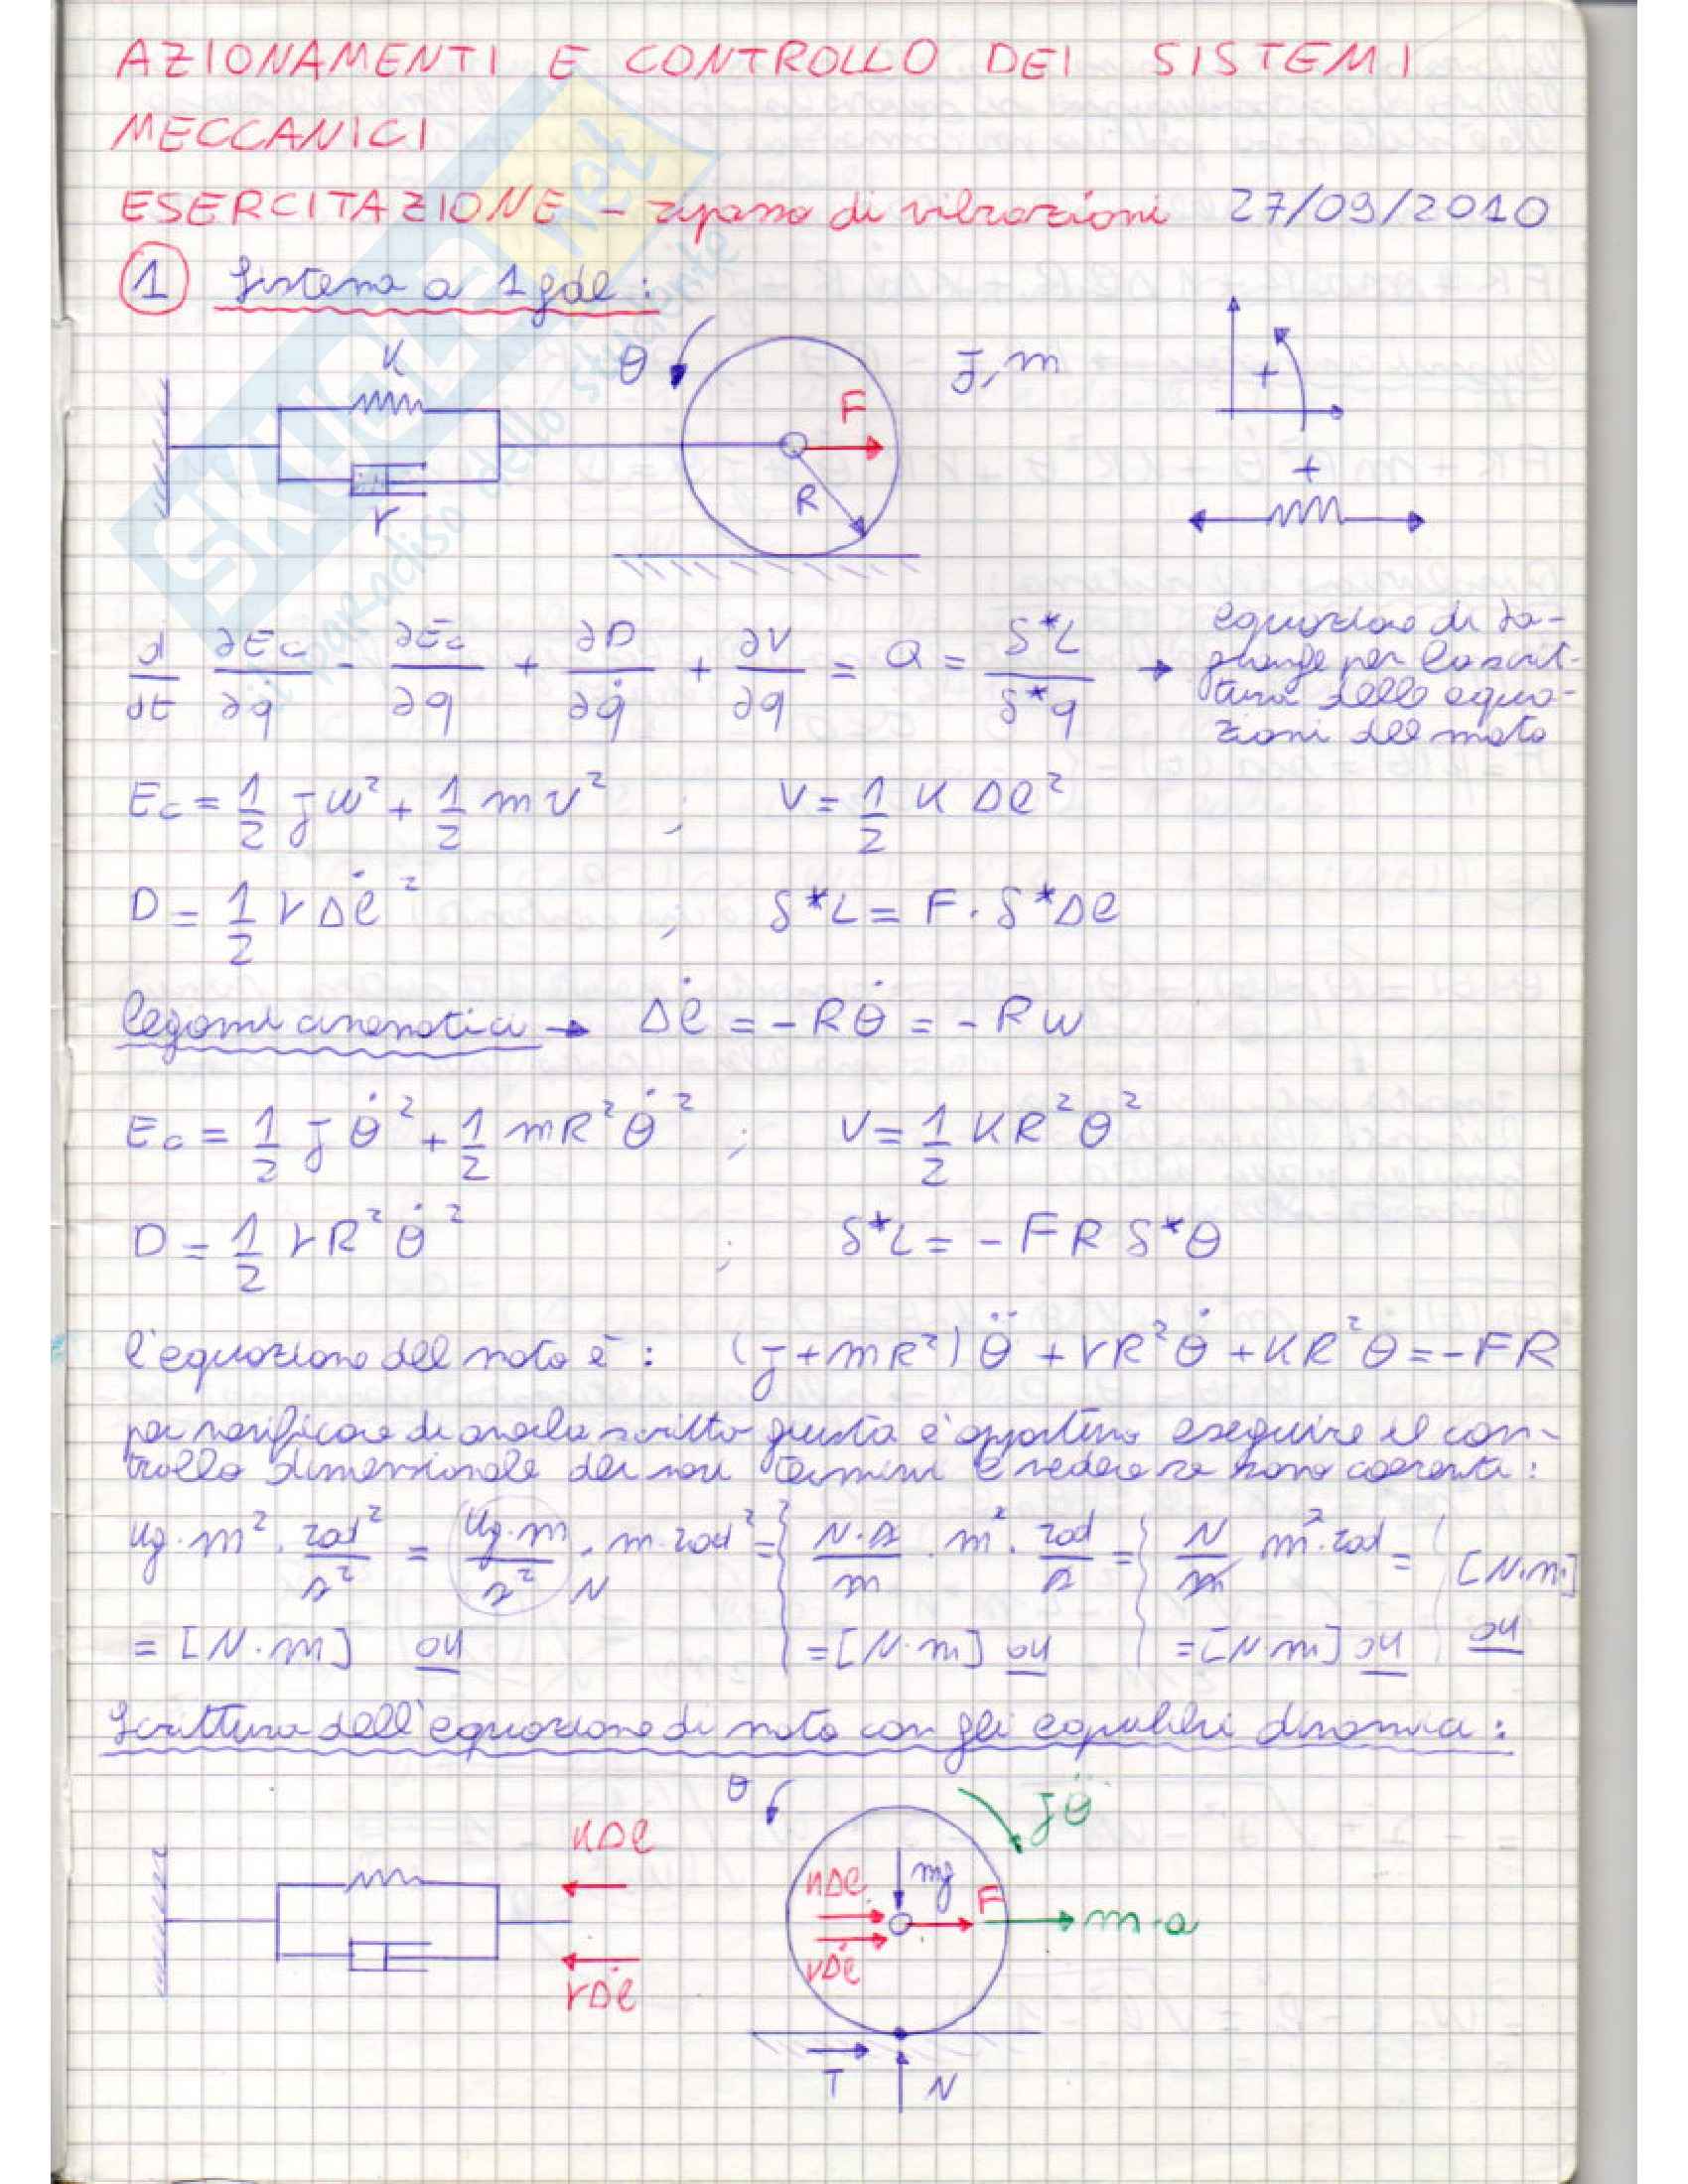 AZIONAMENTI E CONTROLLO DEI SISTEMI
MECCANICI
ESERCITAZIONE - ripasso di vibrazioni 27/09/2010
1 Sistema a 1 gdl :
K
θ
J, m
F
+
R
r
+
SKUOLA.net
il paradiso dello studente
d/dt ∂Ec/∂q̇ - ∂Ec/∂q + ∂D/∂q̇ + ∂V/∂q = Q = δ*L/δ*q → equazione di La-
grange per la scrit-
tura delle equa-
zioni del moto
Ec = 1/2 J ω² + 1/2 m v² ; V = 1/2 K Δl²
D = 1/2 r Δl̇² ; δ*L = F · δ*Δl
legami cinematici → Δl̇ = - Rθ̇ = - Rω
Ec = 1/2 J θ̇² + 1/2 mR²θ̇² ; V = 1/2 KR²θ²
D = 1/2 rR²θ̇² ; δ*L = - FR δ*θ
l'equazione del moto è : (J + mR²) θ̈ + rR²θ̇ + KR²θ = - FR
per verificare di averla scritta giusta è opportuno eseguire il con-
trollo dimensionale dei vari termini e vedere se sono coerenti :
Kg · m² · rad²/s² = Kg·m/s² N · m · rad² = { N·s/m · m² · rad/s = { N/m m² · rad = { [N·m]
= [N·m] OK { = [N·m] OK { = [N·m] OK { OK
Scrittura dell'equazione di moto con gli equilibri dinamici :
θ
Jθ̈
KΔl
KΔl
mg
F
m·a
rΔl̇
rΔl̇
T
N